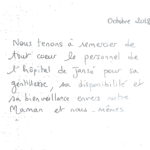 Octobre 2018
Nous tenons à remercier de
tout cœur le personnel de
l'hôpital de Janzé pour sa
gentillesse, sa disponibilité et
sa bienveillance envers notre
Maman et nous-mêmes